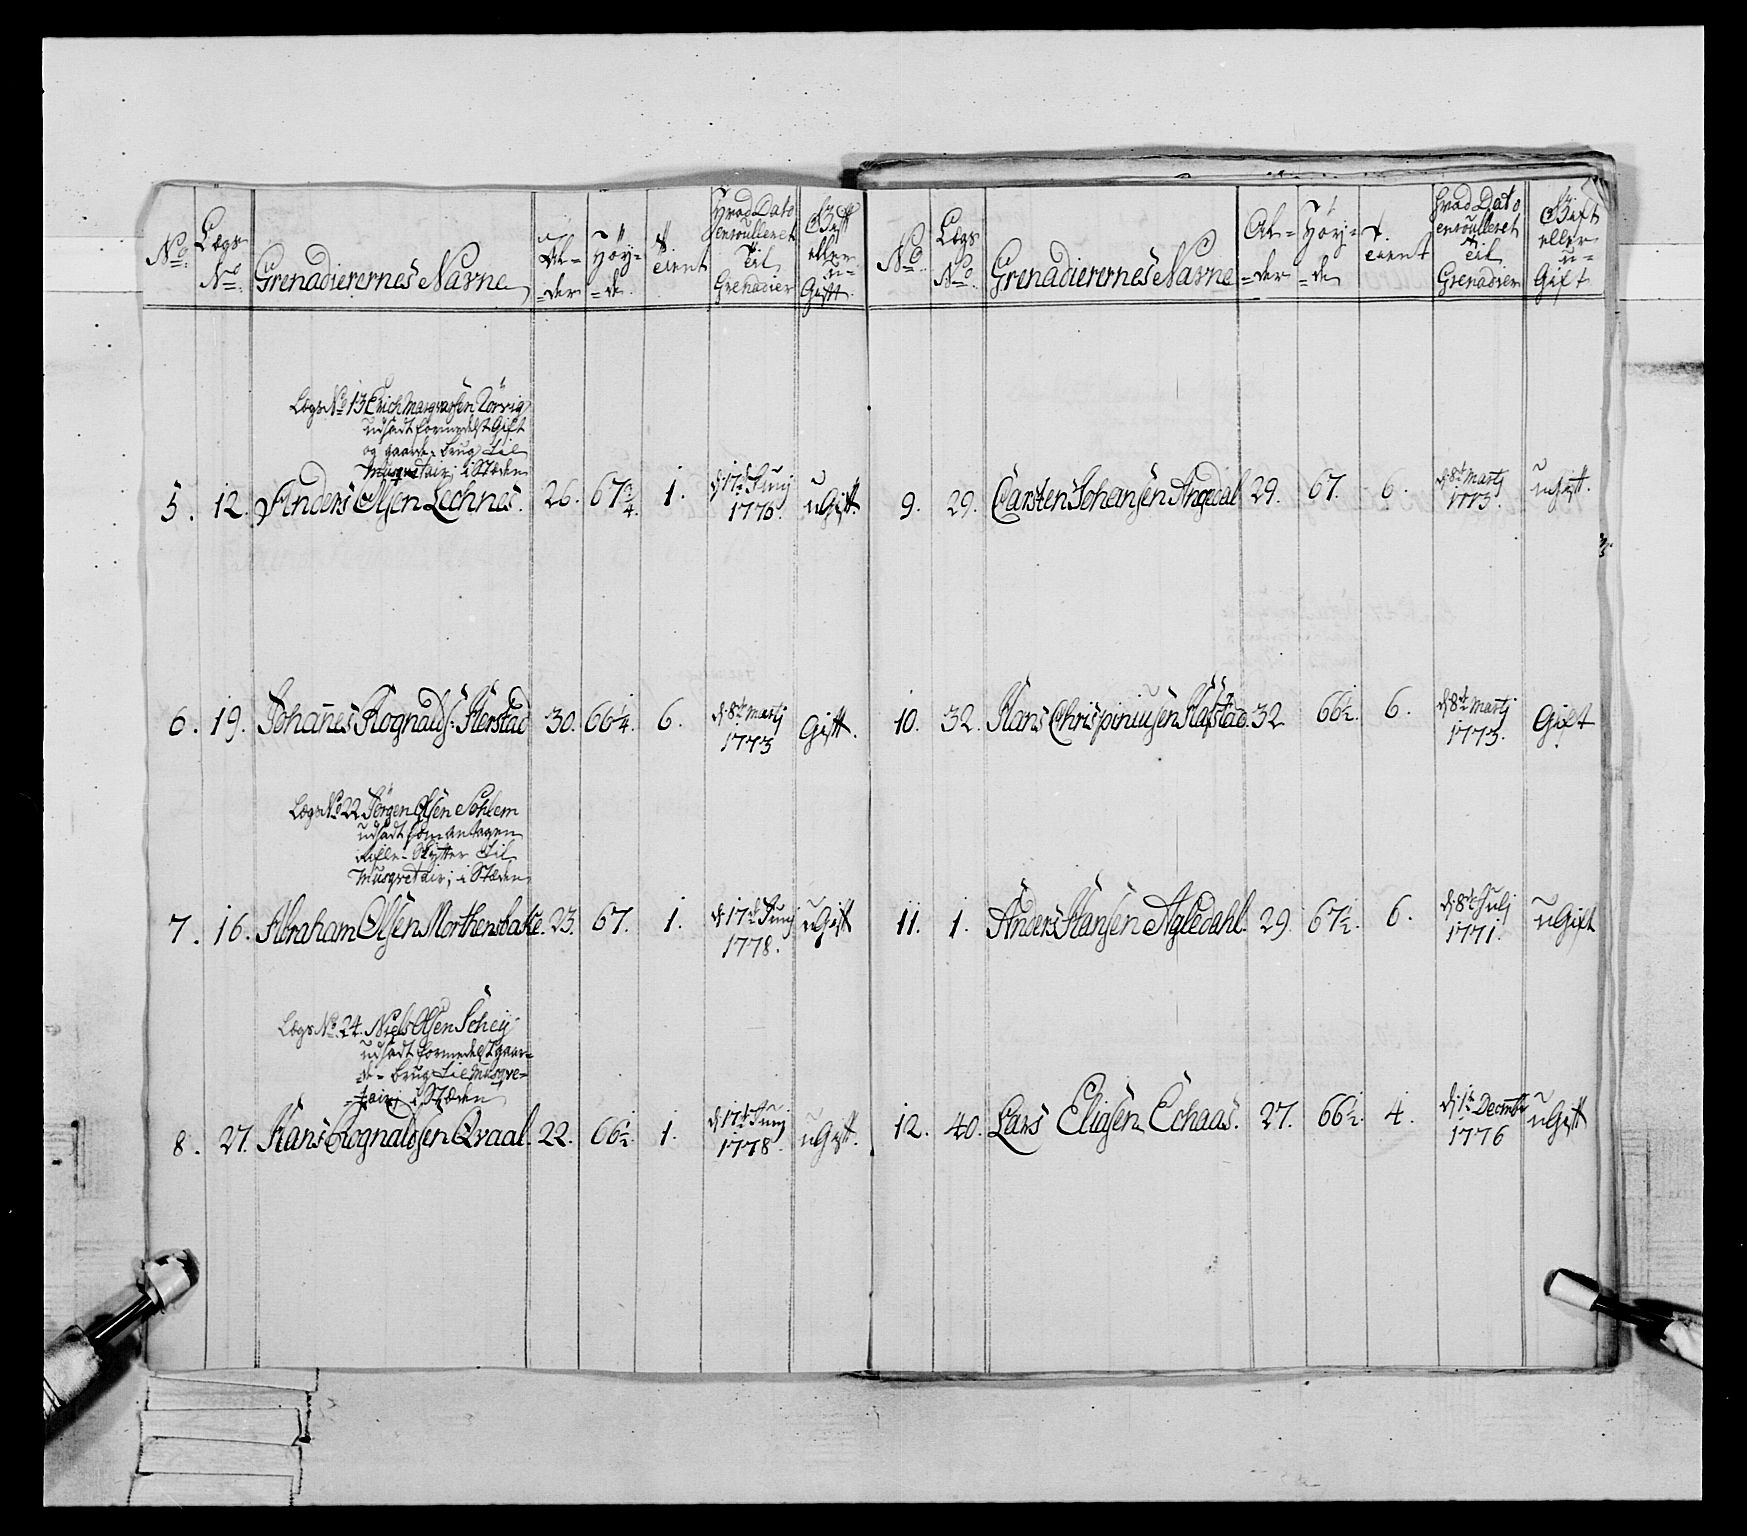 No. Lægs No. Grenadierernes Navne Al-der Høy-de T: tient Hvad Dato enroulleret til Grenadier Gift eller u-Gift
Lægs No 13 Erich Margvarsen Nørvig
udsadt formedelst Gift
og gaards brug til
Musqvetair; i Stæden
5. 12. Anders Olsen Lechnes. 26. 67 3/4. 1. d: 17de Junj 1778. uGift.
6. 19. Johanes Rognalds: Herstad 30. 66 1/4. 6. d: 8de Martj 1773 Gift.
Lægs No 22 Jørgen Olsen Sohlem
udsadt som antagen
Musqvetair; i Stæden
7. 16. Abraham Olsen Morthensbake. 23. 67. 1. d: 17de Junj 1778. uGift
Lægs No. 24. Niels Olsen Schey
udsadt formedelst gaar-
de- brug til Musqve-
-tair; i Stæden
8. 27. Hans Rognaldsen Qvaal. 22. 66 1/2. 1. d: 17de Junj 1778. uGift.
No. Lægs No. Grenadierernes Navne Al-der Høy-de T. tient Hvad Dato enroulleret til Grenadier Gift eller u-Gift
9. 29. Carsten Johansen Angedal 29. 67. 6. d: 8de Martj 1773. uGift.
10. 32. Hans Chrispiniusen Hafstad. 32 66 1/2. 6. d: 8de Martj 1773. Gift
11. 1. Anders Hansen Agledahl. 29. 67 1/2. 6. d: 8de Julj 1771. uGift
12. 40. Lars Eliasen Echaas. 27. 66 1/2. 4. d: 1te Decembr 1776 uGift